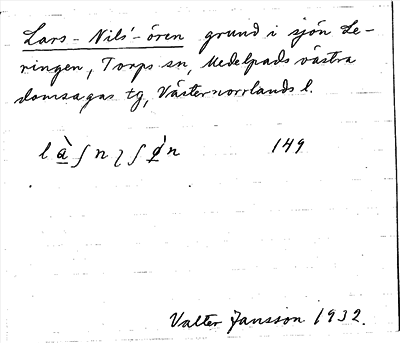 Lars-Nils'-ören grund i sjön Le-
ringen, Torps sn, Medelpads västra
domsagas tg, Västernorrlands l.
149
Valter Jansson 1932.